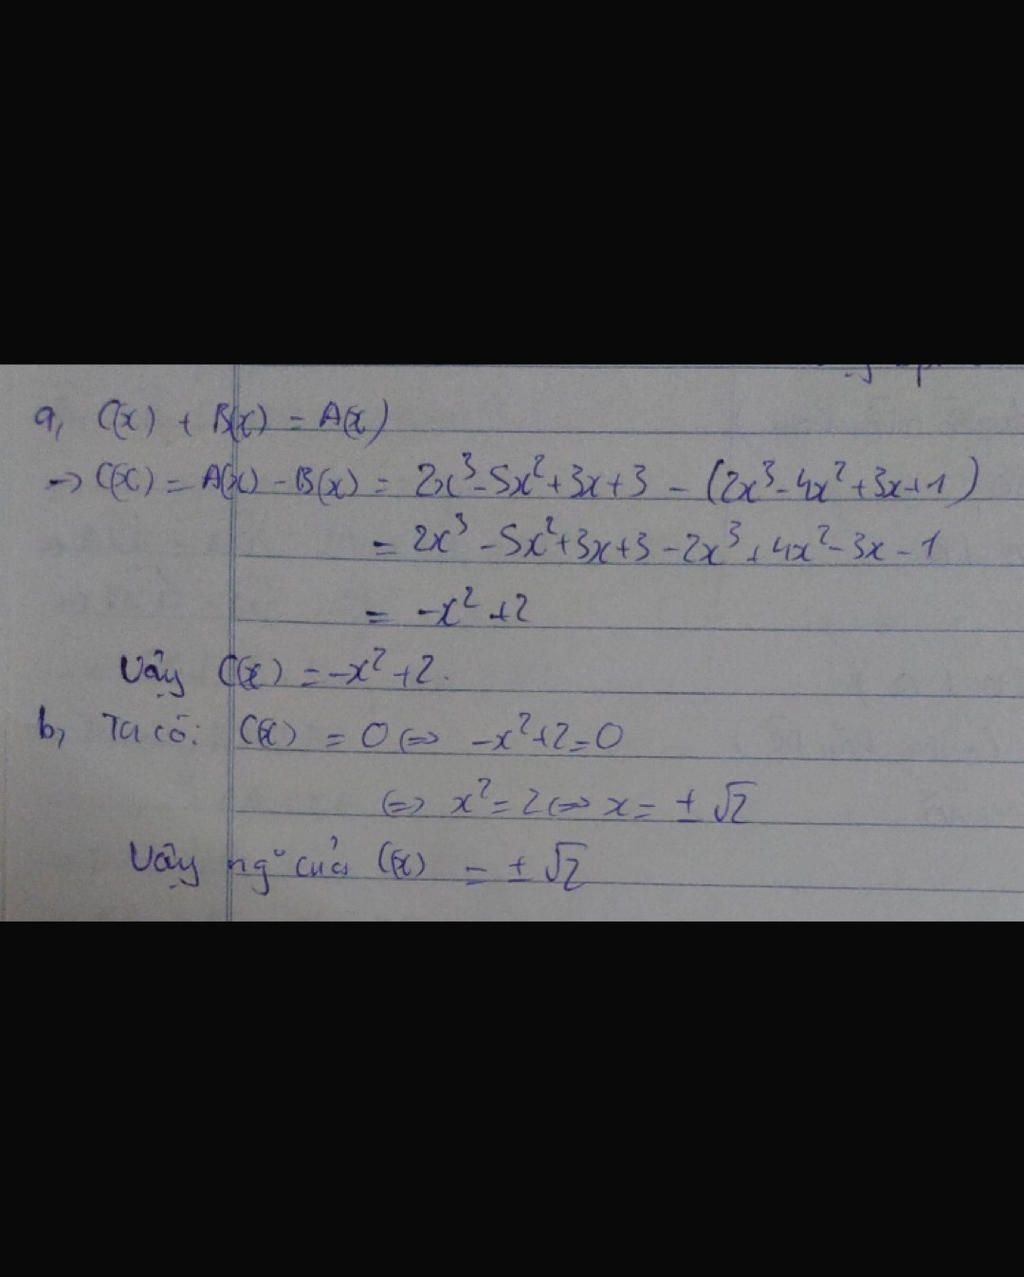 a, C(x) + B(x) = A(x)
→ C(x) = A(x) - B(x) = 2x³-5x²+3x+3 - (2x³-4x²+3x+1)
= 2x³ -5x²+3x+3 -2x³ +4x²-3x-1
= -x² +2
Vậy C(x) = -x² +2.
b, Ta có: C(x) = 0 ⇔ -x²+2=0
⇔ x²=2 ⇔ x= ± √2
Vậy ng° của C(x) = ± √2